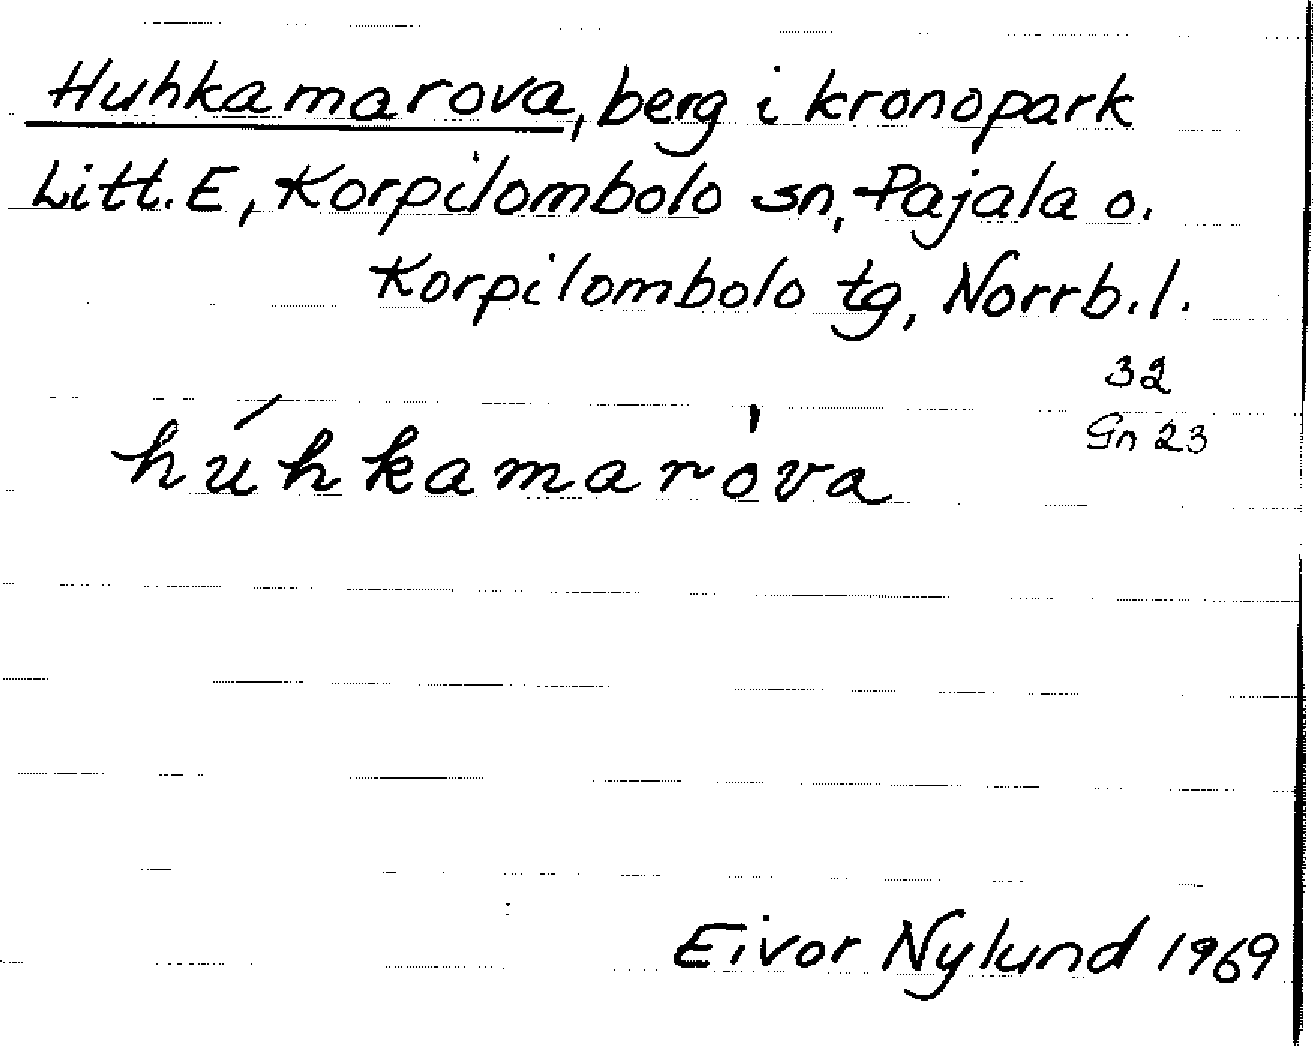 Huhkamarova, berg i kronopark
Litt. E, Korpilombolo sn, Pajala o.
Korpilombolo tg, Norrb.l.
32
Gn 23
húhkamaròva
Eivor Nylund 1969